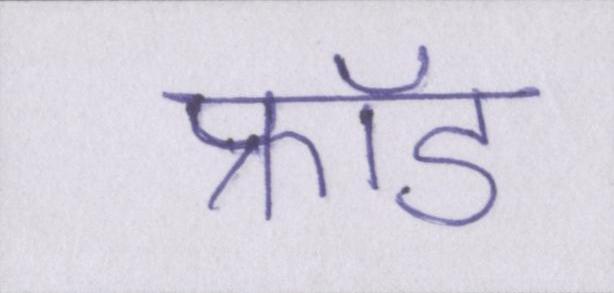 फ्रॉड